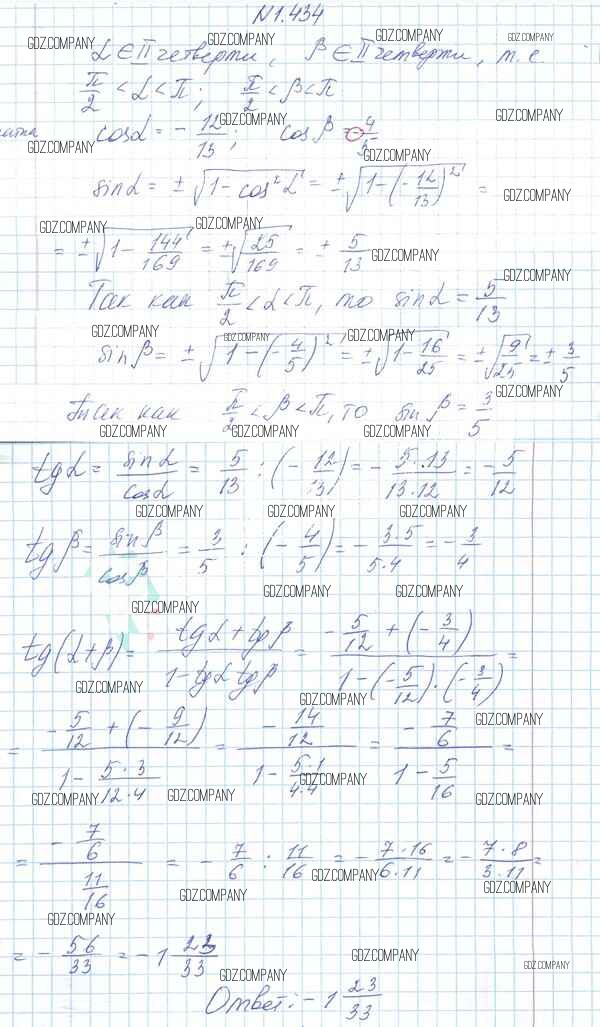 N1.434
GDZ.COMPANY GDZ.COMPANY GDZ.COMPANY GDZ.COMPANY
α ∈ II четверти, β ∈ II четверти, т. е
π/2 < α < π; π/2 < β < π
GDZ.COMPANY GDZ.COMPANY
cosα = - 12/13; cosβ = - 4/5
GDZ.COMPANY GDZ.COMPANY
sinα = ± √(1 - cos²α) = ± √(1 - (- 12/13)²) =
GDZ.COMPANY
GDZ.COMPANY GDZ.COMPANY
= ± √(1 - 144/169) = ± √(25/169) = ± 5/13
GDZ.COMPANY
Так как π/2 < α < π, то sinα = 5/13
GDZ.COMPANY
GDZ.COMPANY GDZ.COMPANY GDZ.COMPANY
sinβ = ± √(1 - (- 4/5)²) = ± √(1 - 16/25) = ± √(9/25) = ± 3/5
GDZ.COMPANY
Так как π/2 < β < π, то sinβ = 3/5
GDZ.COMPANY GDZ.COMPANY GDZ.COMPANY
tgα = sinα/cosα = 5/13 : (- 12/13) = - 5·13/13·12 = - 5/12
GDZ.COMPANY GDZ.COMPANY GDZ.COMPANY
tgβ = sinβ/cosβ = 3/5 : (- 4/5) = - 3·5/5·4 = - 3/4
GDZ.COMPANY GDZ.COMPANY
GDZ.COMPANY
tg(α+β) = (tgα + tgβ)/(1 - tgα tgβ) = (- 5/12 + (- 3/4))/(1 - (- 5/12)·(- 3/4)) =
GDZ.COMPANY GDZ.COMPANY
GDZ.COMPANY
= (- 5/12 + (- 9/12))/(1 - 5·3/12·4) = (- 14/12)/(1 - 5·1/4·4) = (- 7/6)/(1 - 5/16) =
GDZ.COMPANY
GDZ.COMPANY GDZ.COMPANY GDZ.COMPANY
= (- 7/6)/(11/16) = - 7/6 : 11/16 = - 7·16/6·11 = - 7·8/3·11 =
GDZ.COMPANY GDZ.COMPANY
GDZ.COMPANY
GDZ.COMPANY
= - 56/33 = - 1 23/33
GDZ.COMPANY GDZ.COMPANY
GDZ.COMPANY
Ответ: - 1 23/33